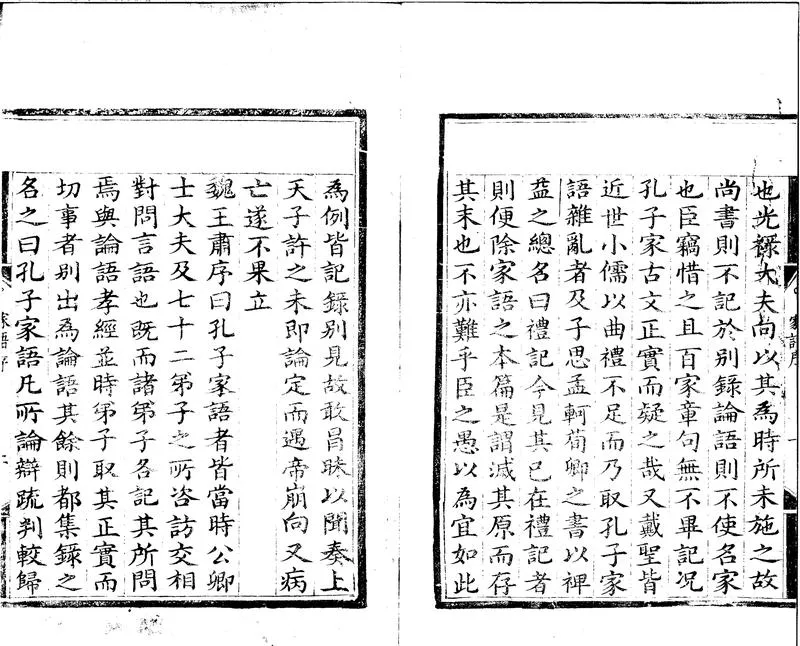 也光祿大夫尚以其為時所未施之故
尚書則不記於別錄論語則不使名家
也臣竊惜之且百家章句無不畢記况
孔子家古文正實而疑之哉又戴聖皆
近世小儒以曲禮不足而乃取孔子家
語雜亂者及子思孟軻荀卿之書以裨
益之總名曰禮記今見其已在禮記者
則便除家語之本篇是謂滅其原而存
其末也不亦難乎臣之愚以為宜如此
為例皆記錄別見故敢昌昧以聞奏上
天子許之未即論定而遇帝崩向又病
亡遂不果立
魏王肅序曰孔子家語者皆當時公卿
士大夫及七十二弟子之所咨訪交相
對問言語也既而諸弟子各記其所問
焉與論語孝經並時弟子取其正實而
切事者別出為論語其餘則都集錄之
名之曰孔子家語凡所論辯疏判較歸
家語序
家語序